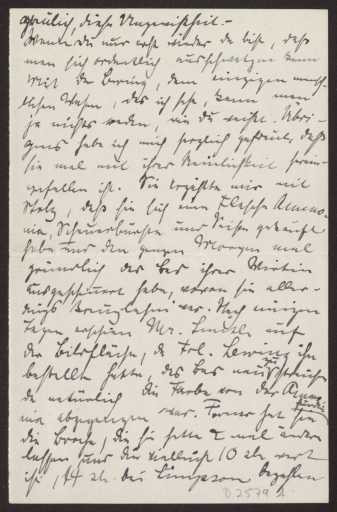 greulich, diese Ungewißheit. –
Wenn du nur erst wieder da bist, daß
man sich ordentlich ausschwatzen kann
Mit De Bering, dem einzigen mensch-
lichen Wesen, das ich sehe, kann man
ja nichts reden, wie du siehst. Übri-
gens habe ich mich herzlich gefreut, daß
sie mal mit ihrer Reinlichkeit herein-
gefallen ist. Sie erzählte mir mit
Stolz, daß sie sich eine Flasche Ammo-
nia, Scheuerbürste und Seife gekauft
habe und den ganzen Morgen mal
gründlich das Bas ihrer Wirtin
ausgescheuert habe, woran sie aller-
dings kreuzlahm war. Nach einigen
Tagen erschien Mr. auf
der Bildfläche, da Frl. Bering ihn
bestellen hatte, das Bas neu zu streichen
da natürlich die Farbe von der Ammo-
nia abgegangen war. Ferner hat sie
die Broche, die sie hatte 2 mal
lassen und die vielleicht 10 sh. wert
ist, 14 sh. bei Simpson bezahlen
D 2579 1